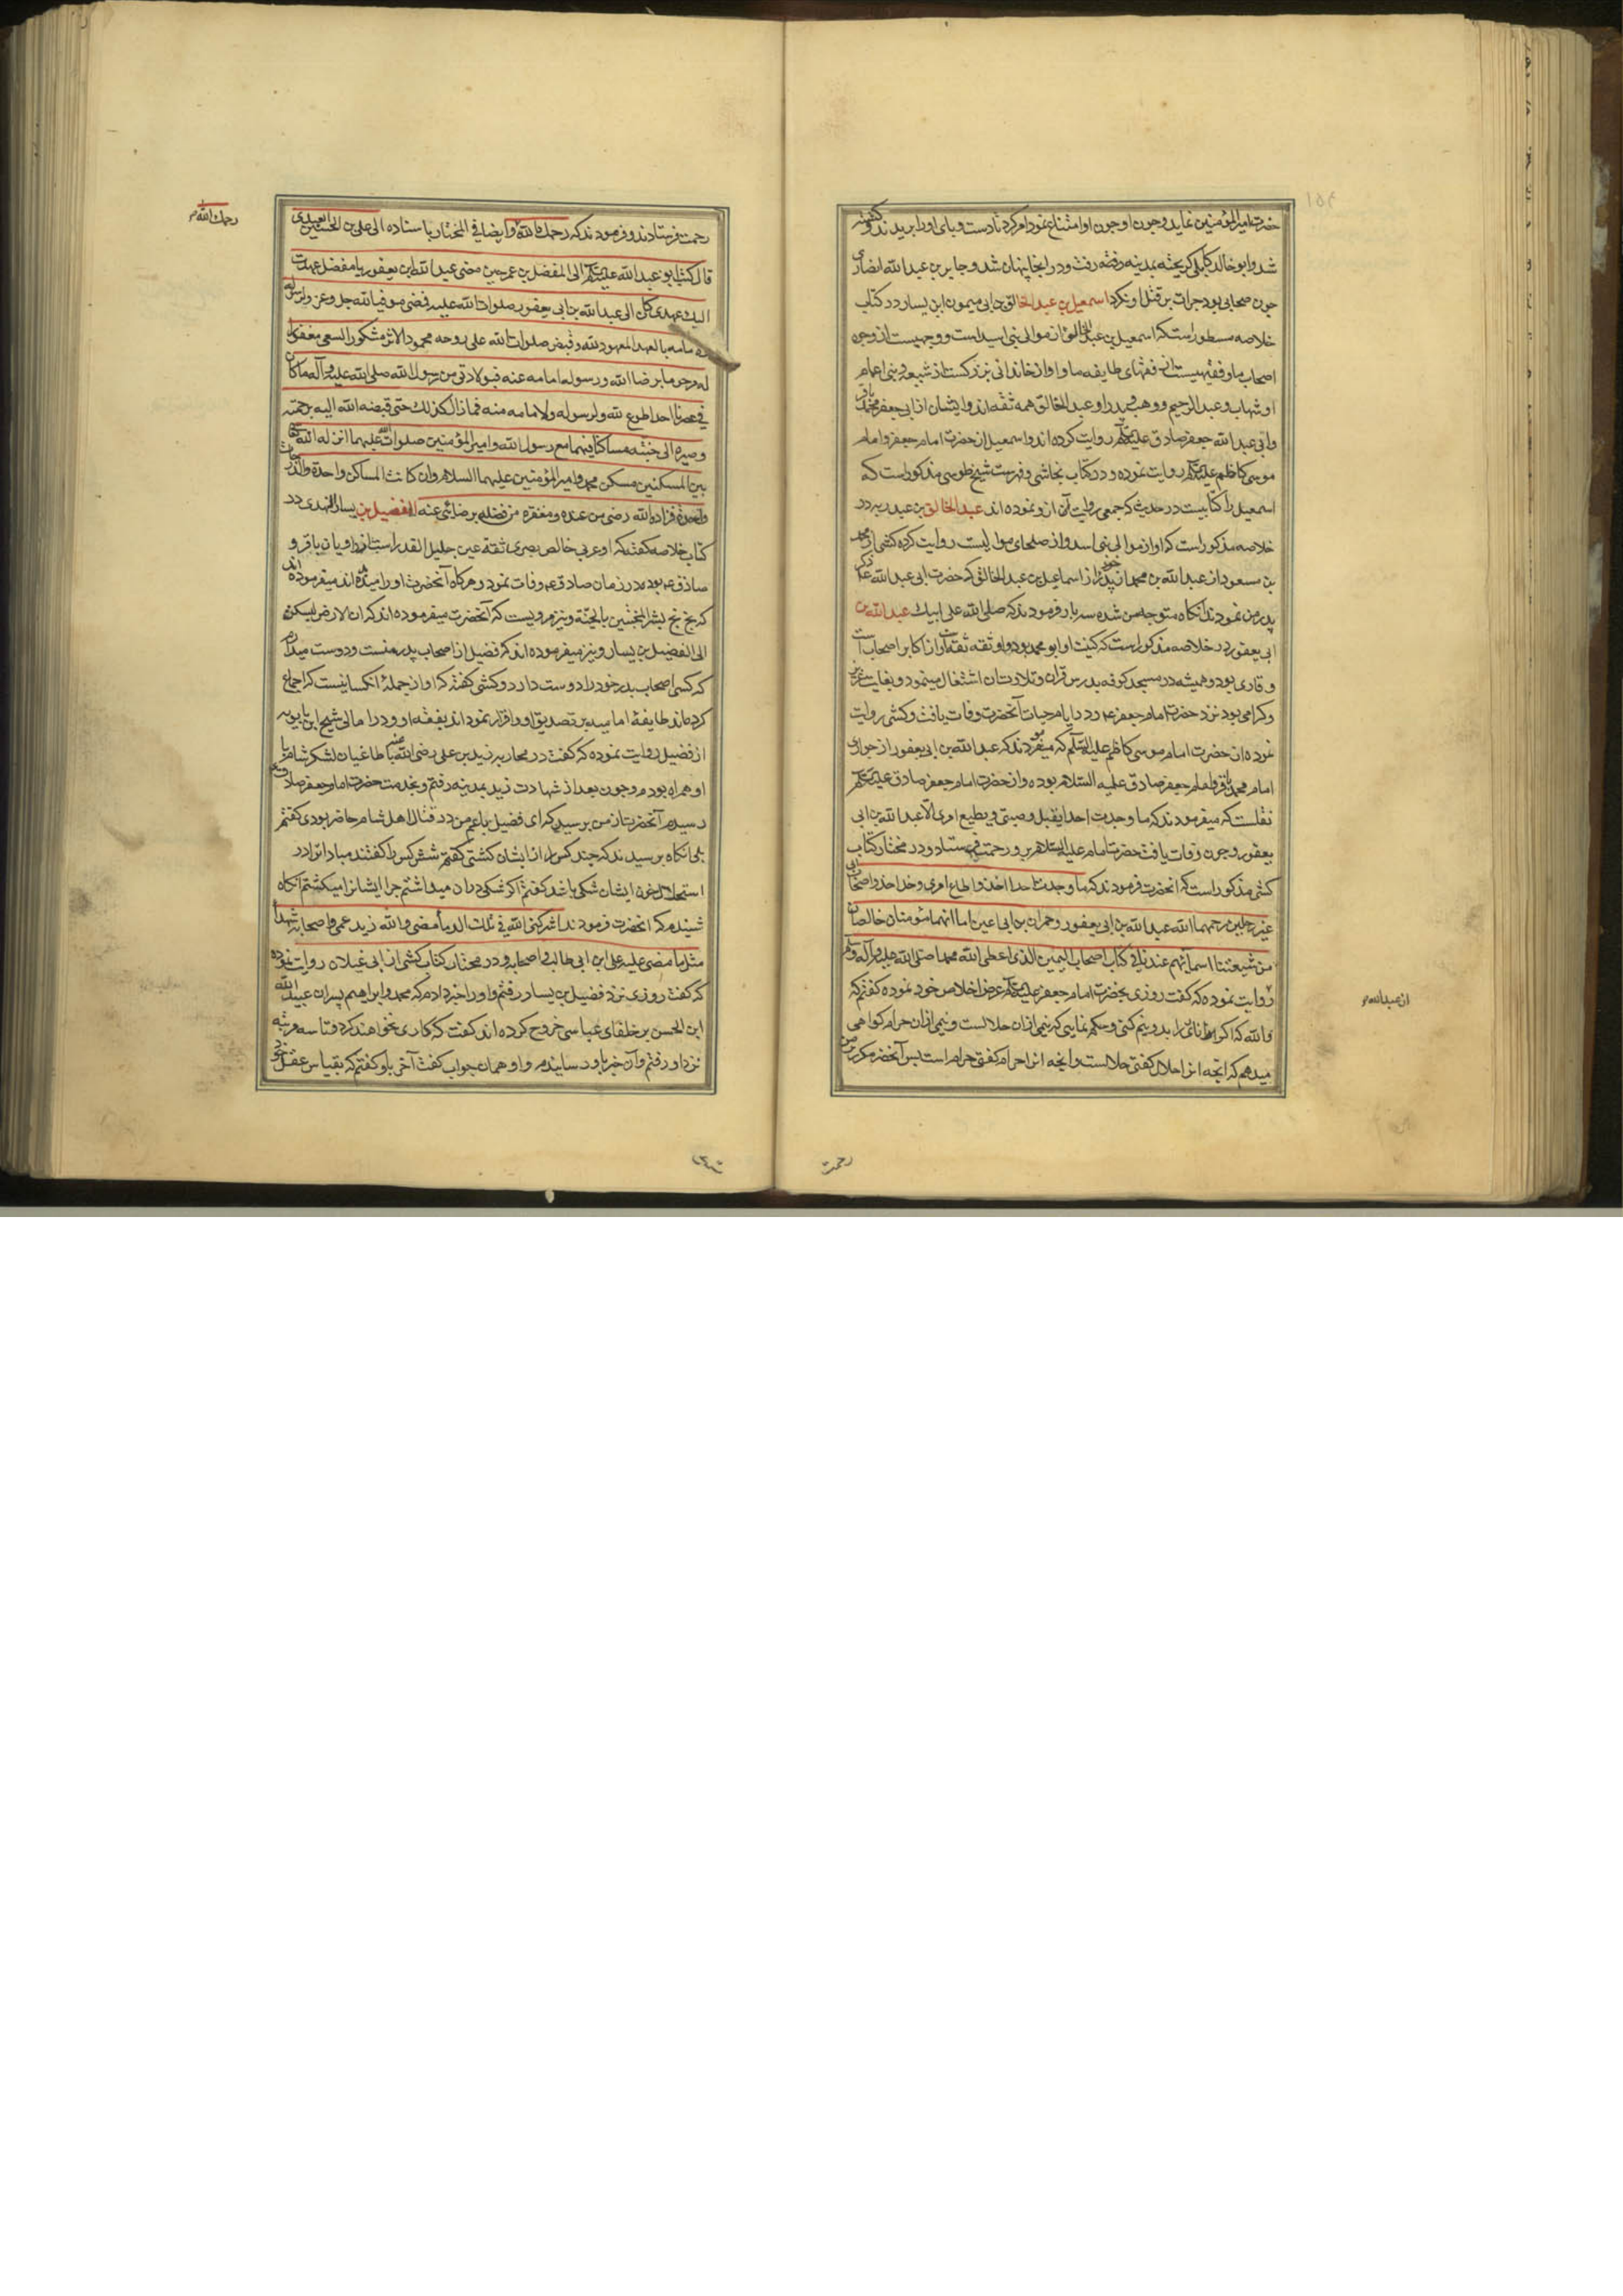 حضرت امیرالمؤمنین نماید و چون او چون او امتناع نمود امر کرد تا دست و پای او را بریدند و کشته
شد و ابو خالد کابلی گریخته بمدینه رفت و در انجا پنهان شد و جابر بن عبد الله انصاری
چون صحابی بود جرات بر قتل او نکرد اسمعیل بن عبد الخالق بن ابی میمون ابن یسار در کتاب
خلاصه مسطور است که اسمعیل بن عبد الخالق از موالی بنی اسید است و وجهیست از وجوه
اصحاب ما و فقیهیست از فقهای طایفه ما و او از خاندانی بزرگست از شیعه و بنی اعمام
او شهاب و عبد الرحیم و وهب و پدر او عبد الخالق همه ثقه اند و ایشان از ابی جعفر محمد باقر
و ابی عبد الله جعفر صادق علیهم روایت کرده اند و اسمعیل از حضرت امام جعفر و امام
موسی کاظم علیهم روایت نموده و در کتاب نجاشی و فهرست شیخ طوسی مذکور است که
اسمعیل را کتابیست در حدیث که جمعی روایت آن ازو نموده اند عبد الخالق بن عبد ربه در
خلاصه مذکور است که او از موالی بنی اسد و از صلحای موالیست روایت کرده کشی از محمد
بن مسعود از عبد الله بن محمد از پدر خود از اسماعیل بن عبد الخالق که حضرت ابی عبد الله ع ذکر
پدر من نمودند انکاه متوجه من شده سه بار فرمودند که صلی الله علی ابیک عبد الله بن
ابی یعفور در خلاصه مذکور است که کنیت او ابو محمد بود و او ثقه ثقه است و از اکابر اصحاب است
و قاری بود و همیشه در مسجد کوفه بدرس قران و تلاوت ان اشتغال مینمود و بغایت عزیز
و کرامی بود نزد حضرت امام جعفر ع و در ایام حیات آنحضرت وفات یافت و کشی روایت
نموده از حضرت امام موسی کاظم علیه السلم که میفرمودند که عبد الله بن ابی یعفور از حواری
امام محمد باقر و امام جعفر صادق علیه السلام بوده و از حضرت امام جعفر صادق علیهم
نقلست که میفرمودند که ما وجدت احدا یقبل وصیتی و یطیع امری الا عبد الله بن ابی
یعفور و چون وفات یافت حضرت امام علیه السلام برو رحمت فرستاد و در مختار کتاب
کشی مذکور است که انحضرت فرمودند که ما وجدت احدا اخذ و اطاع امری و حذا حذو اصحاب ابی
غیر رجلین رحمهما الله عبد الله بن ابی یعفور و حمران بن ابی اعین اما انهما مؤمنان خالصان
من شیعتنا اسمائهم عندنا فی کتاب اصحاب الیمین الذی اعطی الله محمدا صلی الله علیه و آله وسلم
روایت نموده که کفت روزی بحضرت امام جعفر علیهم عرض اخلاص خود نموده کفتم که
والله که اکر تو اناری را بدو نیم کنی و حکم نمایی که نیمی ازان حلالست و نیمی ازان حرام کواهی
میدهم که انچه انرا حلال کفتی حلالست و انچه انرا حرام کفتی حرام است پس آنحضرت مکرر بر من
از عبدالله
رحمت
رحمک الله
رحمت فرستادند و فرمودند که رحمک الله و ایضا فی المختار باسناده الی علی بن الحسین العبیدی
قال کتب ابو عبد الله علیهم الی المفضل بن عمر حین مضی عبد الله ابن یعفور یا مفضل عهدت
الیک عهدی کان الی عبد الله بن ابی یعفور صلوات الله علیه فمضی موفیا لله جل و عز و لرسوله
مامه بالعهد المعهود لله و قبض صلوات الله علی روحه محمود الاثر مشکور السعی مغفورا
له مرحوما برضا الله و رسوله و امامه عنه فبولادتی من رسول الله صلی الله علیه و آله ما کان
فی عصرنا احد اطوع لله و لرسوله و لامامه منه فما زال کذلک حتی قبضه الله الیه برحمته
و صیره الی جنته مساکنا فیها مع رسول الله و امیر المؤمنین صلوات الله علیهما انزله الله
بین المسکنین مسکن محمد و امیر المؤمنین علیهما السلام و ان کانت المساکن واحدة و الدرجات
واحدة فزاده الله رضی من عنده و مغفرة من فضله برضائی عنه الفضیل بن یسار النهدی در
کتاب خلاصه کفته که او عربی خالص بصری ثقه عین جلیل القدر است از راویان باقر و
صادق ع بوده در زمان صادق ع وفات نمود و هرکاه آنحضرت او را میدیده اند میفرموده اند
که بخ بخ بشر المخبتین بالجنة و نیز مرویست که آنحضرت میفرموده اند که ان الارض لیسکن
الی الفضیل بن یسار و نیز میفرموده اند که فضیل از اصحاب پدر منست و دوست میدارم
که کسی اصحاب پدر خود را دوست دارد و کشی کفته که او از جمله آنکسانیست که اجماع
کرده اند طایفه امامیه بر تصدیق او و اقرار نموده اند بفقه او و در امالی شیخ ابن بابویه
از فضیل روایت نموده که کفت در محاربه زید بن علی رضی الله عنه با طاغیان لشکر شام با
او همراه بودم و چون بعد از شهادت زید بمدینه رفتم و بخدمت حضرت امام جعفر صادق ع
رسیدم آنحضرت از من پرسید که ای فضیل با عم من در قتال اهل شام حاضر بودی کفتم
بلی انکاه پرسیدند که چند کس را از ایشان کشتی کفتم شش کس را کفتند مبادا ترا در
استحلال خون ایشان شکی باشد کفتم اکر شکی دران میداشتم چرا ایشانرا میکشتم انکاه
شنیدم که انحضرت فرمودند اشرکنی الله فی تلک الدماء مضی والله زید عمی و اصحابه شهدا
مثل ما مضی علیه علی ابن ابی طالب و اصحابه و در مختار کتاب کشی از ابی غیلان روایت نموده
که کفت روزی نزد فضیل بن یسار رفتم و او را خبر دادم که محمد و ابراهیم پسران عبید الله
ابن الحسن بر خلفای عباسی خروج کرده اند کفت که کاری نخواهند کرد و تا سه مرتبه
نزد او رفتم و آن خبر باو رسانیدم و او همان جواب کفت آخر باو کفتم که بقیاس عقل خود